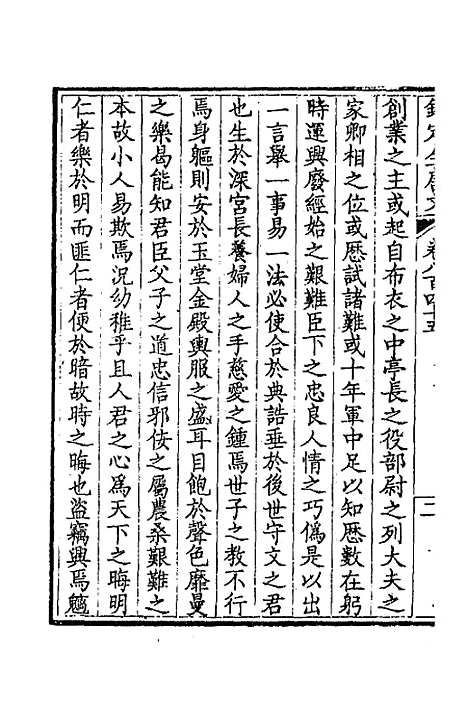 欽定全唐文 卷八百四十五 二
創業之主或起自布衣之中亭長之役部尉之列大夫之
家卿相之位或歷試諸難或十年軍中足以知歷數在躬
時運興廢經始之艱難臣下之忠良人情之巧僞是以出
一言舉一事易一法必使合於典誥垂於後世守文之君
也生於深宮長養婦人之手慈愛之鍾焉世子之教不行
焉身軀則安於玉堂金殿輿服之盛耳目飽於聲色靡曼
之樂曷能知君臣父子之道忠信邪佞之屬農桑艱難之
本故小人易欺焉況幼稚乎且人君之心爲天下之晦明
仁者樂於明而匪仁者便於暗故時之晦也盜竊興焉魑